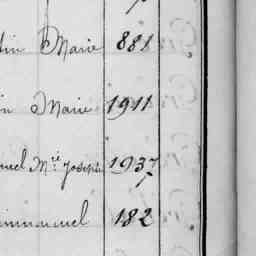 tin Marie 881
in Marie 1911
uel Mie Joseph 1937
immanuel 182